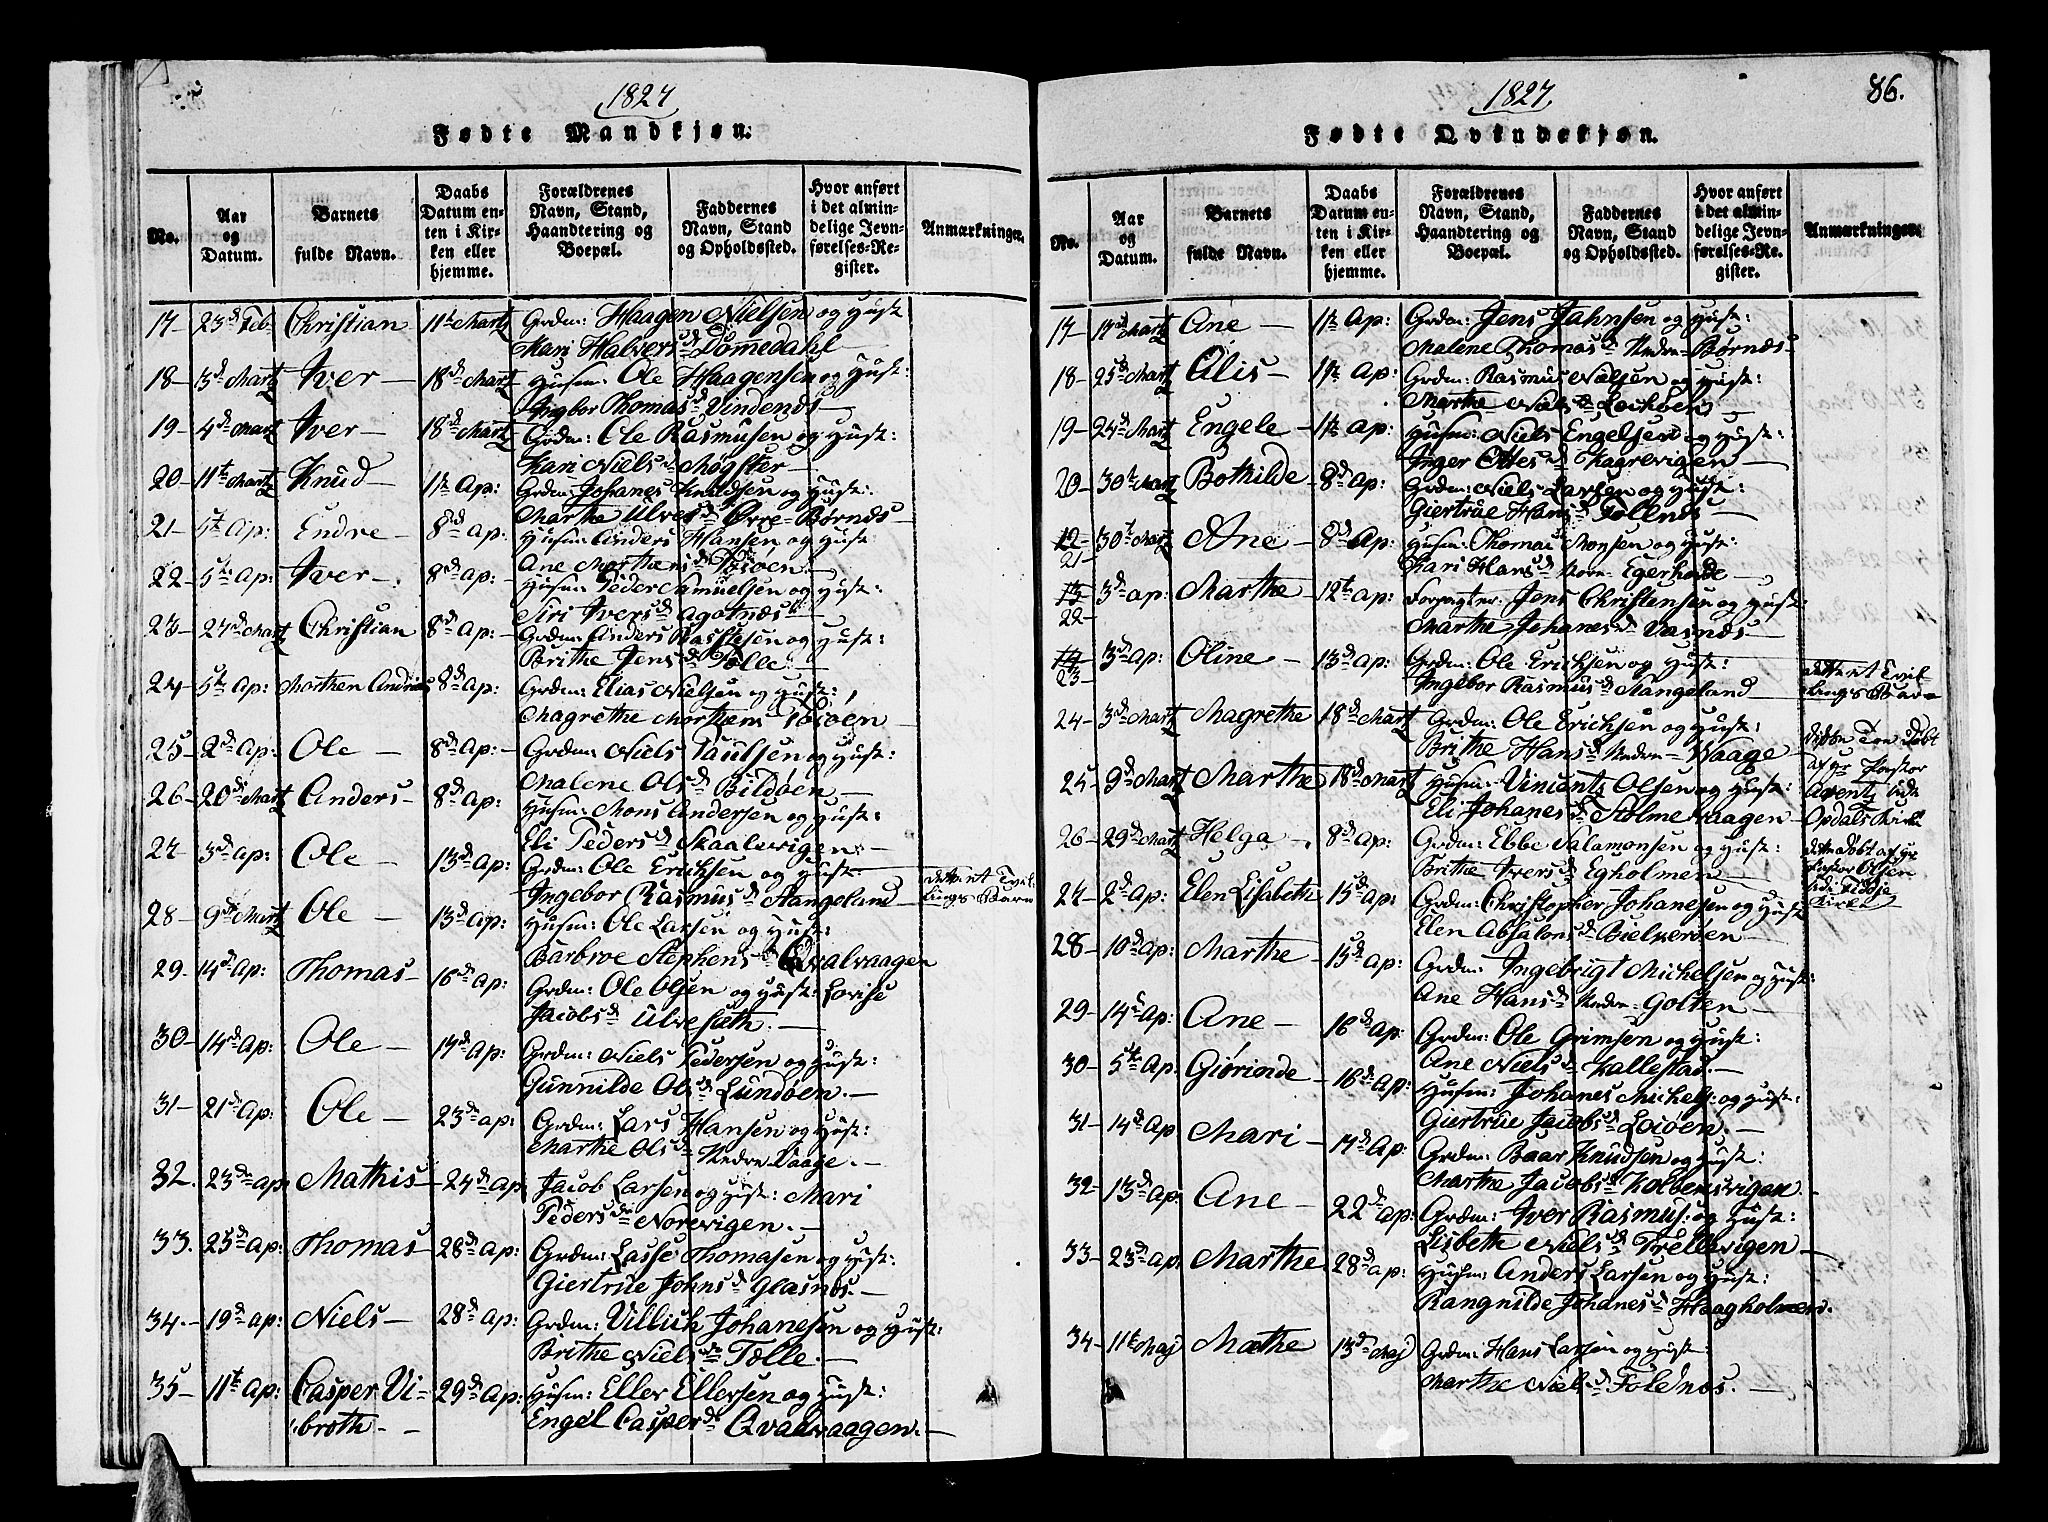 1827
Fødte Mandkjøn.
No.
Aar og Datum.
Barnets fulde Navn.
Daabs Datum enten i Kirken eller hjemme.
Forældrenes Navn, Stand, Haandtering og Boepæl.
Faddernes Navn, Stand og Opholdssted.
Hvor anført i det almindelige Jevnførelses-Register.
Anmærkninger.
17- 23d Feb. Christian 11t Martz Grdm: Haagen Nielsen og Hust
Mari Halvers d. Dommedahl
18- 3d Martz Iver- 18d Martz Husm: Ole Haagensen og Hust:
Ingbor Thomas d. Vindenes-
19- 4d Martz Iver- 18d Martz Grdm: Ole Rasmusen og Hust:
Kari Niels d. Møgster-
20- 11t Martz Knud- 1t Ap: Grdm: Johanes Knudsen og Hust:
Marthe Ulves d. Øvre-Børnæs-
21- 5t Ap: Endre- 8d Ap: Husm: Anders Hansen og Hust:
Ane Morthens d. Toføen.
22- 5t Ap: Iver-. 8d Ap: Husm: Peder Samuelsen og Hust:
Siri Ivers d. Agotnæs
23- 27d Martz Christian 8d Ap: Grdm: Anders Rasmusen og Hust:
Brithe Jens d. Tolle.
24- 5t Ap: Morthen Andreas 8d Ap: Grdm: Elias Nielsen og Hust:
Magrethe Morthens Toføen
25- 2d Ap: Ole- 8d Ap:- Grdm: Niels Paulsen og Hust:
Malene Ols d. Bildøen-
26- 20d Martz Anders- 8d Ap: Husm: Mons Andersen og Hust:
Eli Peders d. Skaalevigen-
27- 3d Ap: Ole 13d Ap: Grdm: Ole Erichsen og Hust:
Ingebor Rasmus d. Stangeland dette et Tvillings Barn
28- 9d Martz Ole- 13d Ap: Husm: Ole Larsen og Hust:
Barbroe Stephens d. Qvalvaagen
29- 14d Ap: Thomas- 16d Ap: Grdm: Ole Olsen og Hust: Lovise
Jacobs d. Ulveseth.-
30- 14d Ap: Ole- 17d Ap: Grdm: Niels Pedersen og Hust:
Gunnilde Ols d. Lundøen.-
31- 21d Ap: Ole- 23d ap: Grdm: Lars Hansen og Hust:
Marthe Ols d. Nedre Vaage.-
32. 23d ap Mathis- 24d ap Jacob Larsen og Hust: Mari
Peders d. Norevigen.-
33. 25d ap: Thomas- 28d Ap: Grdm: Lasse Thomasen og Hust:
Giertrue Johns d. Glasnes.-
34.- 19d ap: Niels- 28d Ap: Grdm: Ullrich Johanesen og Hust:
Brithe Niels d. Tolle.-
35- 11t Ap: Casper Vi- 29d Ap: Husm: Eller Ellersen og Hust:
broth.- Engel Casper d. Qvalvaagen.-
1827 86.
Fødte Qvindekjøn.
No.
Aar og Datum.
Barnets fulde Navn.
Daabs Datum enten i Kirken eller hjemme.
Forældrenes Navn, Stand, Haandtering og Boepæl.
Faddernes Navn, Stand og Opholdssted.
Hvor anført i det almindelige Jevnførelses-Register.
Anmærkninger.
17- Martz Ane- 1t Ap: Grdm: Jens Jahnsen og Hust:
Malene Thomas d. Nedre-Børnæs-
18- 25d Martz Alis- 1t Ap: Grdm: Rasmus Nielsen og Hust:
Marthe Niels d.
19- 24d Martz Engele- 1t Ap: Husm: Niels Engelsen og Hust:
Inger Ottes d. Hagevigen-
20- 30t Martz Bothilde- 8d Ap: Grdm: Niels Larsen og Hust:
Giertrue Hans d. Follnes-
21- 30t Martz Ane- 8d Ap: Husm: Thomas Monsen og Hust:
Kari Hans d. Egerhode-
22- 3d ap: Marthe 12t Ap: Forpagter: Jens Christensen og Hust:
Marthe Johanes d. Vasnæs-
23- 3d Ap: Oline- 13d Ap: Grdm: Ole Erichsen og Hust:
Ingebor Rasmus d. Stangeland dette et Tvillings Barn
24- 3d Martz Magrethe 18d Martz Grdm: Ole Erichsen og Hust:
Brithe Hans d. Nedre-Waage
25- 9d Martz Marthe 18d Martz Husm: Vincents Olsen og Hust:
Eli Johanes d. Stolmevaagen-
disse Tve Døbt af Hr Pastor Arentz
Opdals Kirke
26- 29d Martz Helga-. 8d Ap: Grdm: Ebbe Salamonsen og Hust:
Brithe Ivers d. Egholmen-
dette Døbt af Hr Pastor Olsen
Kirke
27- 2d Ap: Elen Lisabeth 15d ap: Grdm: Christopher Johanesen og Hust
Elen Absalons d. Bielkerøen-
28- 10d Ap: Marthe- 15d Ap: Grdm: Ingebrigt Michelsen og Hust:
Ane Hans d. Nedre-Golten-
29- 14d Ap: Ane- 16d Ap: Grdm: Ole Grimsen og Hust:
Ane Niels d. Kallestad.-
30- 5t Ap: Giørinde- 16d Ap: Husm: Johanes Michels: og Hust:
Giertrue Jacobs d. Loføen.-
31- 14d Ap Mari- 17d Ap: Grdm: Baar Knudsen og Hust:
Marthe Jacobs d. Kolbensvigen.
32- 13d Ap: Ane- 22d ap: Grdm: Iver Rasmus: og Hust:
Lisbethe Niels d. Trellevigen-
33- 23d Ap Marthe 28d ap: Husm: Anders Larsen og Hust:
Rangnilde Johanes d. Haagholmen.
34- 11t Maj Mathe 13d Maj Grdm: Hans Larsen og Hust
Marthe Niels d. Foldnes.-